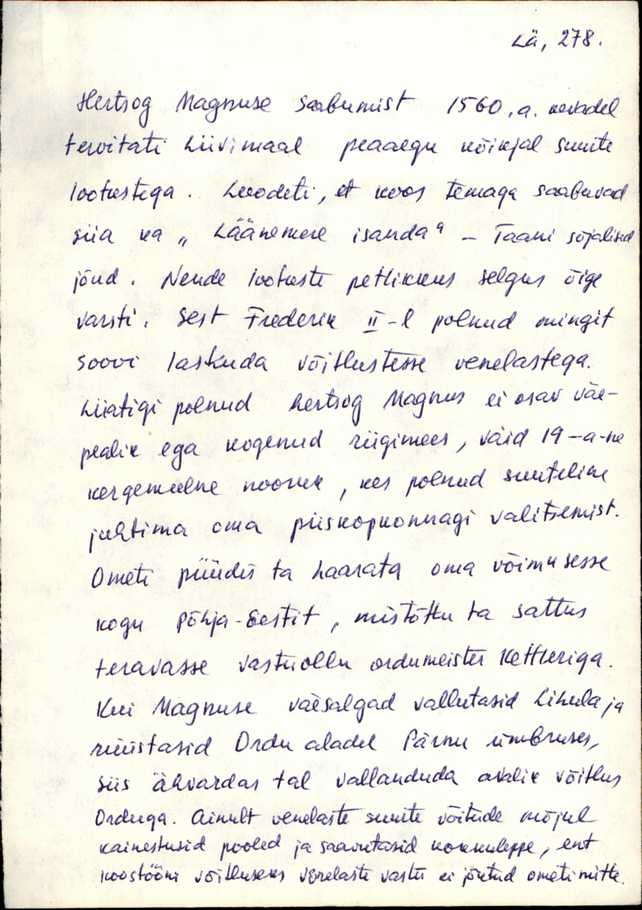 Lä, 278.
Hertsog Magnuse saabumist 1560.a. kevadel
tervitati Liivimaal peaaegu kõikjal suurte
lootustega. Loodeti, et koos temaga saabuvad
siia ka „Läänemere isanda" – Taani sõjalised
jõud. Nende lootuste petlikkus selgus õige
varsti. Sest Frederik II-l polnud mingit
soovi laskuda võitlustesse venelastega.
Liiatigi polnud hertsog Magnus ei osav väe-
pealik ega kogenud riigimees, vaid 19-a-ne
kergemeelne nooruk, kes polnud suuteline
juhtima oma piiskopkonnagi valitsemist.
Ometi püüdis ta haarata oma võimusesse
kogu Põhja-Eestit, mistõttu ta sattus
teravasse vastuollu ordumeister Kettleriga.
Kui Magnuse väesalgad vallutasid Lihula ja
rüüstasid Ordu aladel Pärnu ümbruses,
siis ähvardas tal vallanduda avalik võitlus
Orduga. Ainult venelaste suurte võitude mõjul
kainestusid pooled ja saavutasid kokkuleppe, ent
koostööni võitluseks venelaste vastu ei jõutud ometi mitte.